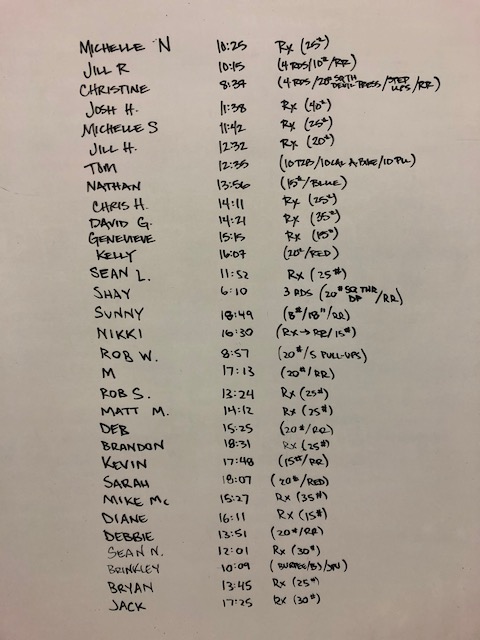 MICHELLE N 10:25 Rx (25#)
JILL R 10:15 (4 RDS/10#/RR)
CHRISTINE 8:37 (4 RDS/20# SQ TH DEVIL PRESS/STEP UPS/RR)
JOSH H. 11:38 Rx (40#)
MICHELLE S 11:42 Rx (25#)
JILL H. 12:32 Rx (20#)
TOM 12:35 (10 T2B/10 CAL A.BIKE/10 PU)
NATHAN 13:56 (15#/BLUE)
CHRIS H. 14:11 Rx (25#)
DAVID G. 14:21 Rx (35#)
GENEVIEVE 15:15 Rx (15#)
KELLY 16:07 (20#/RED)
SEAN L. 11:52 Rx (25#)
SHAY 6:10 3 RDS (20# SQ THR DP/RR)
SUNNY 18:49 (8#/18"/RR)
NIKKI 16:30 (Rx→RR/15#)
ROB W. 8:57 (20#/5 PULL-UPS)
M 17:13 (20#/RR)
ROB S. 13:24 Rx (25#)
MATT M. 14:12 Rx (25#)
DEB 15:25 (20#/RR)
BRANDON 18:31 Rx (25#)
KEVIN 17:48 (15#/RR)
SARAH 18:07 (20#/RED)
MIKE Mc 15:27 Rx (35#)
DIANE 16:11 Rx (15#)
DEBBIE 13:51 (20#/RR)
SEAN N. 12:01 Rx (30#)
BRINKLEY 10:09 (BURPEE/BJ/
BRYAN 13:45 Rx (25#)
JACK 17:25 Rx (30#)